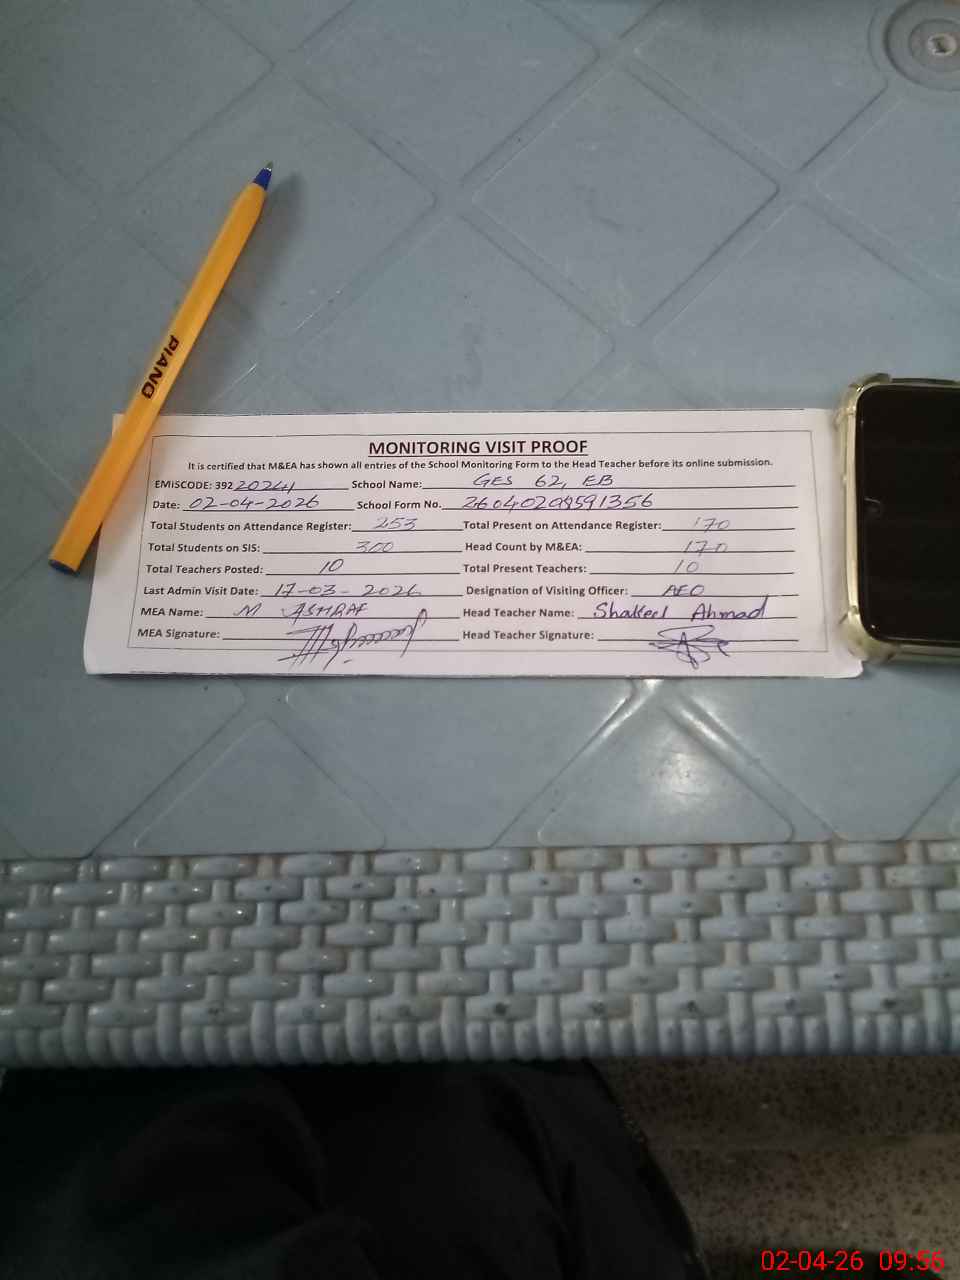 PIANO
MONITORING VISIT PROOF
It is certified that M&EA has shown all entries of the School Monitoring Form to the Head Teacher before its online submission.
EMISCODE: 392 20241 School Name: GES 62, EB
Date: 02-04-2026 School Form No. 26040208591356
Total Students on Attendance Register: 253 Total Present on Attendance Register: 170
Total Students on SIS: 300 Head Count by M&EA: 170
Total Teachers Posted: 10 Total Present Teachers: 10
Last Admin Visit Date: 17-03-2026 Designation of Visiting Officer: AEO
MEA Name: M ASHRAF Head Teacher Name: Shakeel Ahmad
MEA Signature: Head Teacher Signature:
02-04-26 09:56